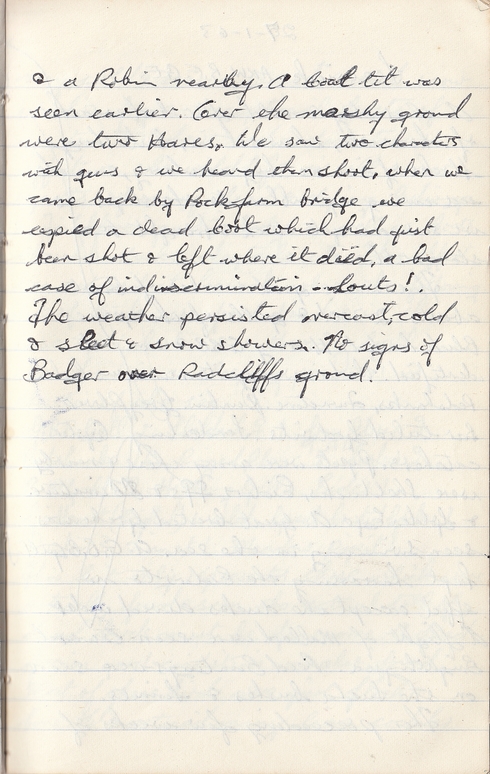 & a Robin nearby. A coal tit was
seen earlier. Over the marshy ground
were two Hares. We saw two characters
with guns & we heard them shoot, when we
came back by Rocksfarm bridge we
espied a dead coot which had just
been shot & left where it died, a bad
case of indiscrimination - louts!.
The weather persisted overcast, cold
& sleet & snow showers. No signs of
Badger over Radcliffs ground.